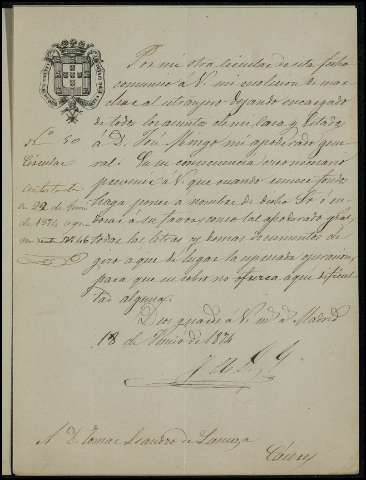 Por mi otra circular de esta fecha
comunico á V. mi resolucion de mar
char al estranjero dejando encargado
de todos los asuntos de mi Casa y Estados
á D. José Monge mi apoderado gene
ral. En su consecuencia creo necesario
prevenir á V. que cuando remese fondos
haga poner á nombre de dicho Sr ó en
dosar á su favor, como tal apoderado gral,
todas las letras y demas documentos de
giro á que dé lugar la espresada operacion,
para que su cobro no ofrezca aqui dificul
tad alguna.
Dios guarde á V. m. a. Madrid
18 de Junio de 1874
Nº 50
Circular
Contestada
en 22 de Junio
de 1874
Nº 46
A D. Tomas Leandro de